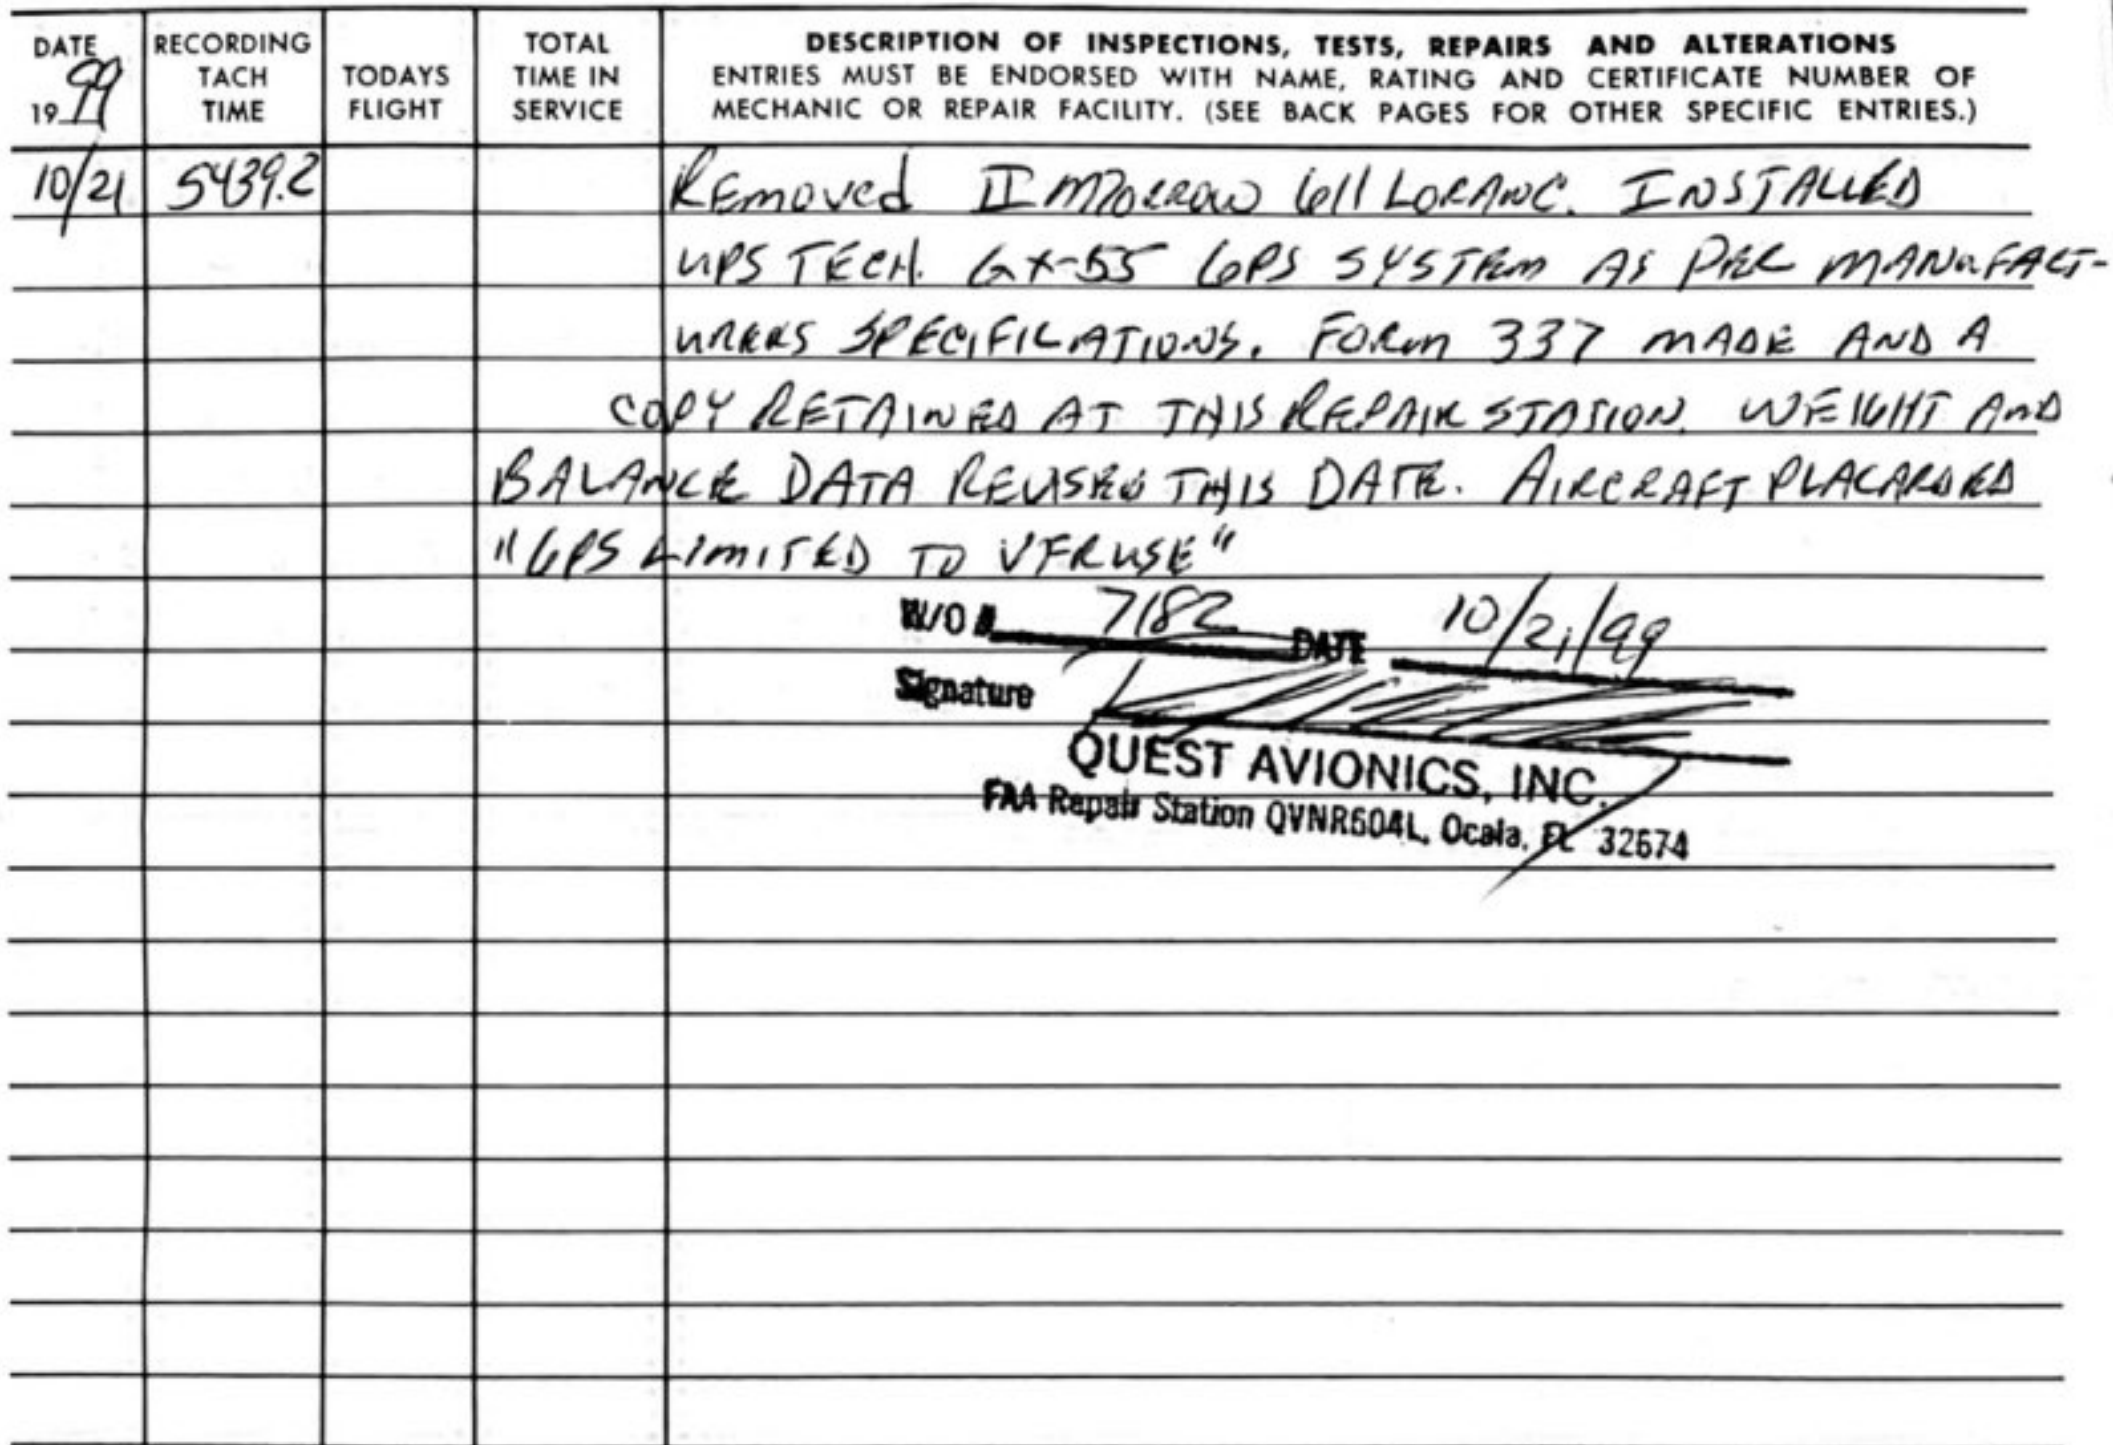 DATE
19 99
RECORDING
TACH
TIME
TODAYS
FLIGHT
TOTAL
TIME IN
SERVICE
DESCRIPTION OF INSPECTIONS, TESTS, REPAIRS AND ALTERATIONS
ENTRIES MUST BE ENDORSED WITH NAME, RATING AND CERTIFICATE NUMBER OF
MECHANIC OR REPAIR FACILITY. (SEE BACK PAGES FOR OTHER SPECIFIC ENTRIES.)
10/21 5439.2 REMOVED II MORROW 611 LORANC. INSTALLED
UPS TECH. GX-55 GPS SYSTEM AS PER MANUFACT-
URERS SPECIFICATIONS. FORM 337 MADE AND A
COPY RETAINED AT THIS REPAIR STATION. WEIGHT AND
BALANCE DATA REVISED THIS DATE. AIRCRAFT PLACARDED
"GPS LIMITED TO VFR USE"
W/O # 7182 DATE 10/21/99
Signature
QUEST AVIONICS, INC.
FAA Repair Station QVNR604L, Ocala, FL 32674